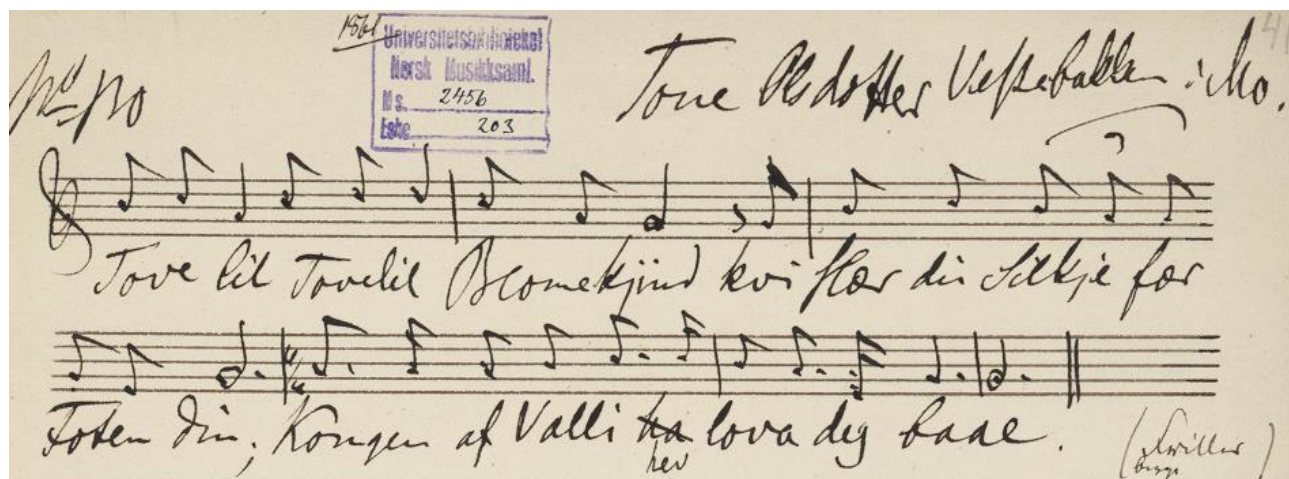 1861
Universitetsbiblioteket
Norsk Musikksaml.
Ms. 2456
Eske 203
41
No 110
Tone Olsdotter i Mo.
3
Tove lil Tovelil Blomekjind kvi slær din Silkje før
Foten din; Kongen af Valli ha lova deg baae.
hev